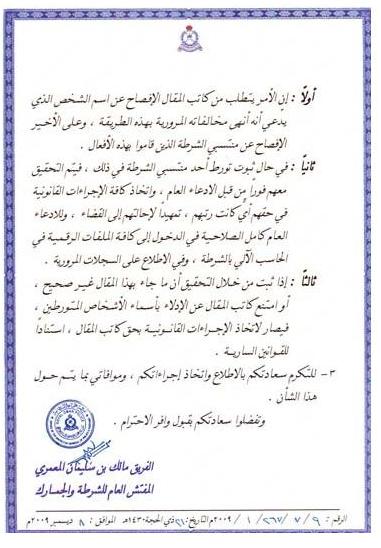 أولاً : إن الأمر يتطلب من كاتب المقال الإفصاح عن اسم الشخص الذي
يدعي أنه أنهى مخالفاته المرورية بهذه الطريقة ، وعلى الأخير
الإفصاح عن منتسبي الشرطة الذين قاموا بهذه الأفعال .
ثانياً : في حال ثبوت تورط أحد منتسبي الشرطة في ذلك ، فيتم التحقيق
معهم فوراً من قبل الادعاء العام ، واتخاذ كافة الإجراءات القانونية
في حقهم أي كانت رتبهم ، تمهيداً لإحالتهم إلى القضاء ، وللادعاء
العام كامل الصلاحية في الدخول إلى كافة الملفات الرقمية في
الحاسب الآلي بالشرطة ، وفي الاطلاع على السجلات المرورية .
ثالثاً : إذا ثبت من خلال التحقيق أن ما جاء بهذا المقال غير صحيح ،
أو امتنع كاتب المقال عن الإدلاء بأسماء الأشخاص المتورطين ،
فيصار لاتخاذ الإجراءات القانونية بحق كاتب المقال ، استناداً
للقوانين السارية .
٣ – للتكرم سعادتكم بالاطلاع واتخاذ إجراءاتكم ، وموافاتي بما يتم حول
هذا الشأن .
وتفضلوا سعادتكم بقبول وافر الاحترام .
الفريق مالك بن سليمان المعمري
المفتش العام للشرطة والجمارك
الرقم : ٩ / ٧ / ٢٦٧ / ١ / ٢٠٠٩م التاريخ : ٢١ ذي الحجة ١٤٣٠هـ الموافق : ٨ ديسمبر ٢٠٠٩م